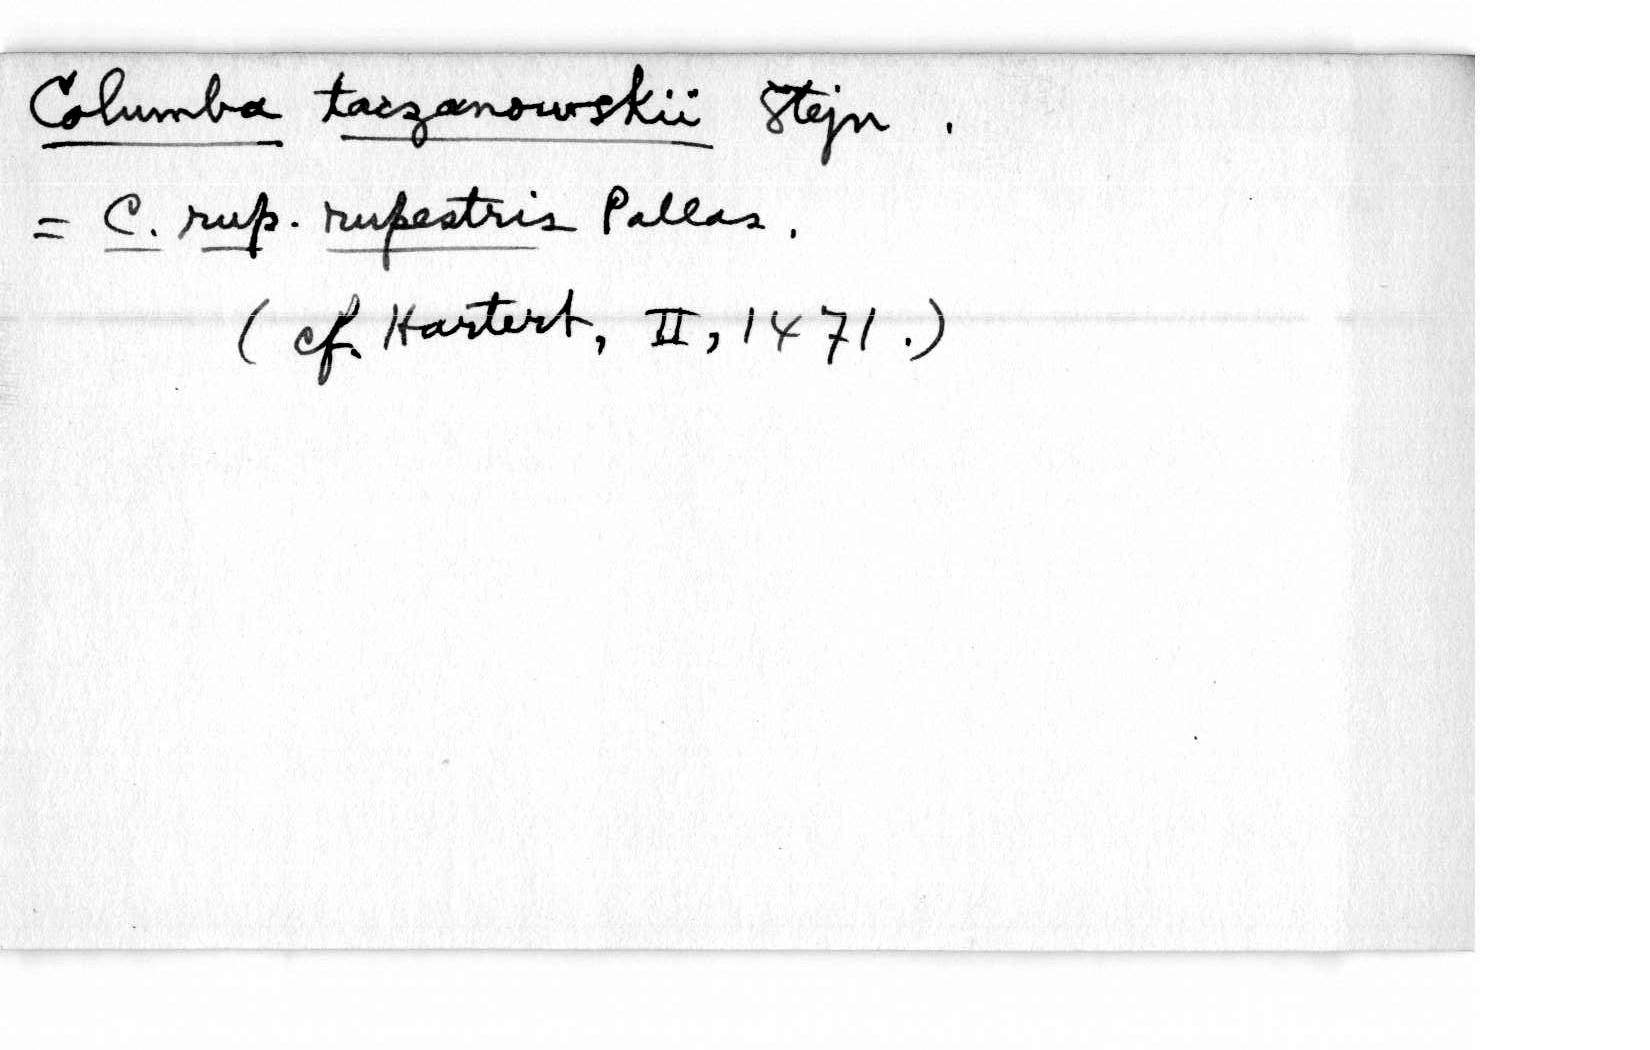 Columba taczanowskii Stejn.
= C. rup. rupestris Pallas.
(cf. Hartert, II, 1471.)